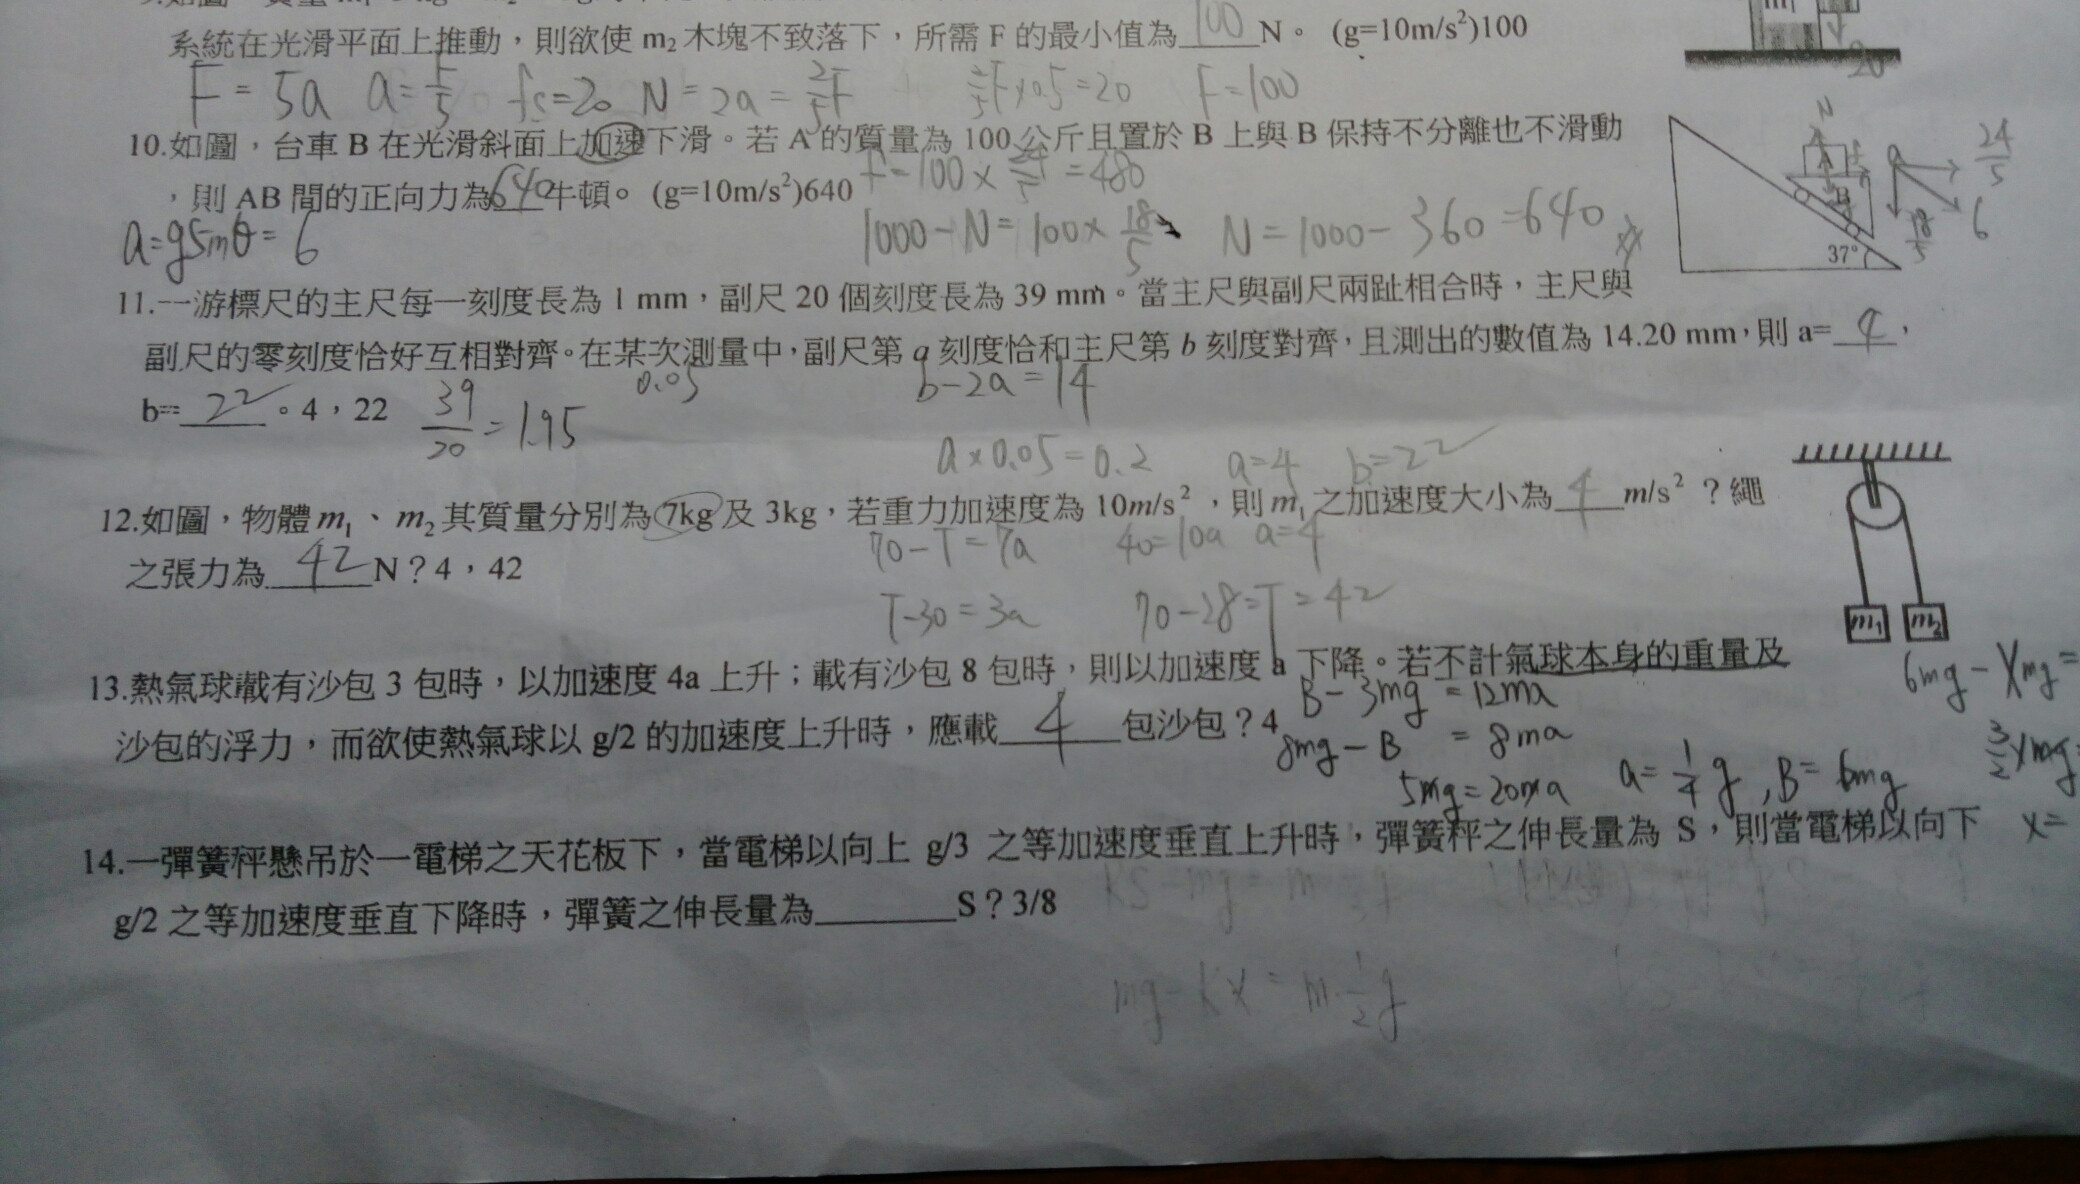 系統在光滑平面上推動，則欲使 m₂ 木塊不致落下，所需 F 的最小值為 100 N。 (g=10m/s²)100
F = 5a a = F/5 fs=20 N = 2a = 2/5F 2/5F×0.5=20 F=100
20
10.如圖，台車 B 在光滑斜面上加速下滑。若 A 的質量為 100 公斤且置於 B 上與 B 保持不分離也不滑動
，則 AB 間的正向力為 640 牛頓。 (g=10m/s²)640
f=100× 24/5 =480
a=gsinθ= 6
1000-N= 100× 18/5 N=1000-360=640
N
A
B
37°
a
24/5
18/5
6
11.一游標尺的主尺每一刻度長為 1 mm，副尺 20 個刻度長為 39 mm。當主尺與副尺兩趾相合時，主尺與
副尺的零刻度恰好互相對齊。在某次測量中，副尺第 a 刻度恰和主尺第 b 刻度對齊，且測出的數值為 14.20 mm，則 a= 4 ，
0.05 b-2a=14
b= 22 。4，22 39/20 = 1.95
a×0.05=0.2 a=4 b=22
12.如圖，物體 m₁ 、 m₂ 其質量分別為 7kg 及 3kg，若重力加速度為 10m/s² ，則 m₁ 之加速度大小為 4 m/s² ？繩
70-T=7a 40=10a a=4
之張力為 42 N？4，42
T-30=3a 70-28=T=42
m₁ m₂
13.熱氣球載有沙包 3 包時，以加速度 4a 上升；載有沙包 8 包時，則以加速度 a 下降。若不計氣球本身的重量及
6mg-Xmg=
B-3mg=12ma
沙包的浮力，而欲使熱氣球以 g/2 的加速度上升時，應載 4 包沙包？4
8mg-B = 8ma
3/2Xmg
5mg=20ma a= 1/4 g , B= 6mg
x=
14.一彈簧秤懸吊於一電梯之天花板下，當電梯以向上 g/3 之等加速度垂直上升時，彈簧秤之伸長量為 S，則當電梯以向下
KS-mg=m 1/3 g
g/2 之等加速度垂直下降時，彈簧之伸長量為______S？3/8
mg-kx=m 1/2 g